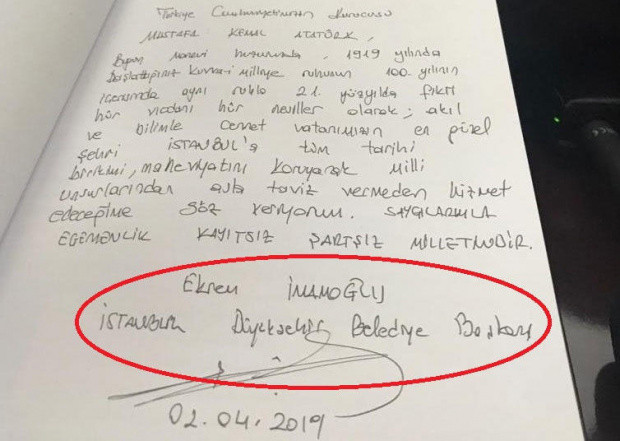 Türkiye Cumhuriyetinin Kurucusu
MUSTAFA KEMAL ATATÜRK,
Bugün manevi huzurunda, 1919 yılında
başlattığınız kuva-i Milliye ruhunun 100. yılının
içerisinde aynı ruhla 21. yüzyılda fikri
hür vicdanı hür nesiller olarak; akıl
ve bilimle cennet vatanımızın en güzel
şehri İSTANBUL'a tüm tarihi
birikimi, maneviyatını koruyarak Milli
unsurlarından asla taviz vermeden hizmet
edeceğime söz veriyorum. SAYGILARIMLA
EGEMENLİK KAYITSIZ ŞARTSIZ MİLLETİNDİR.
Ekrem İMAMOĞLU
İSTANBUL Büyükşehir Belediye Başkanı
02.04.2019